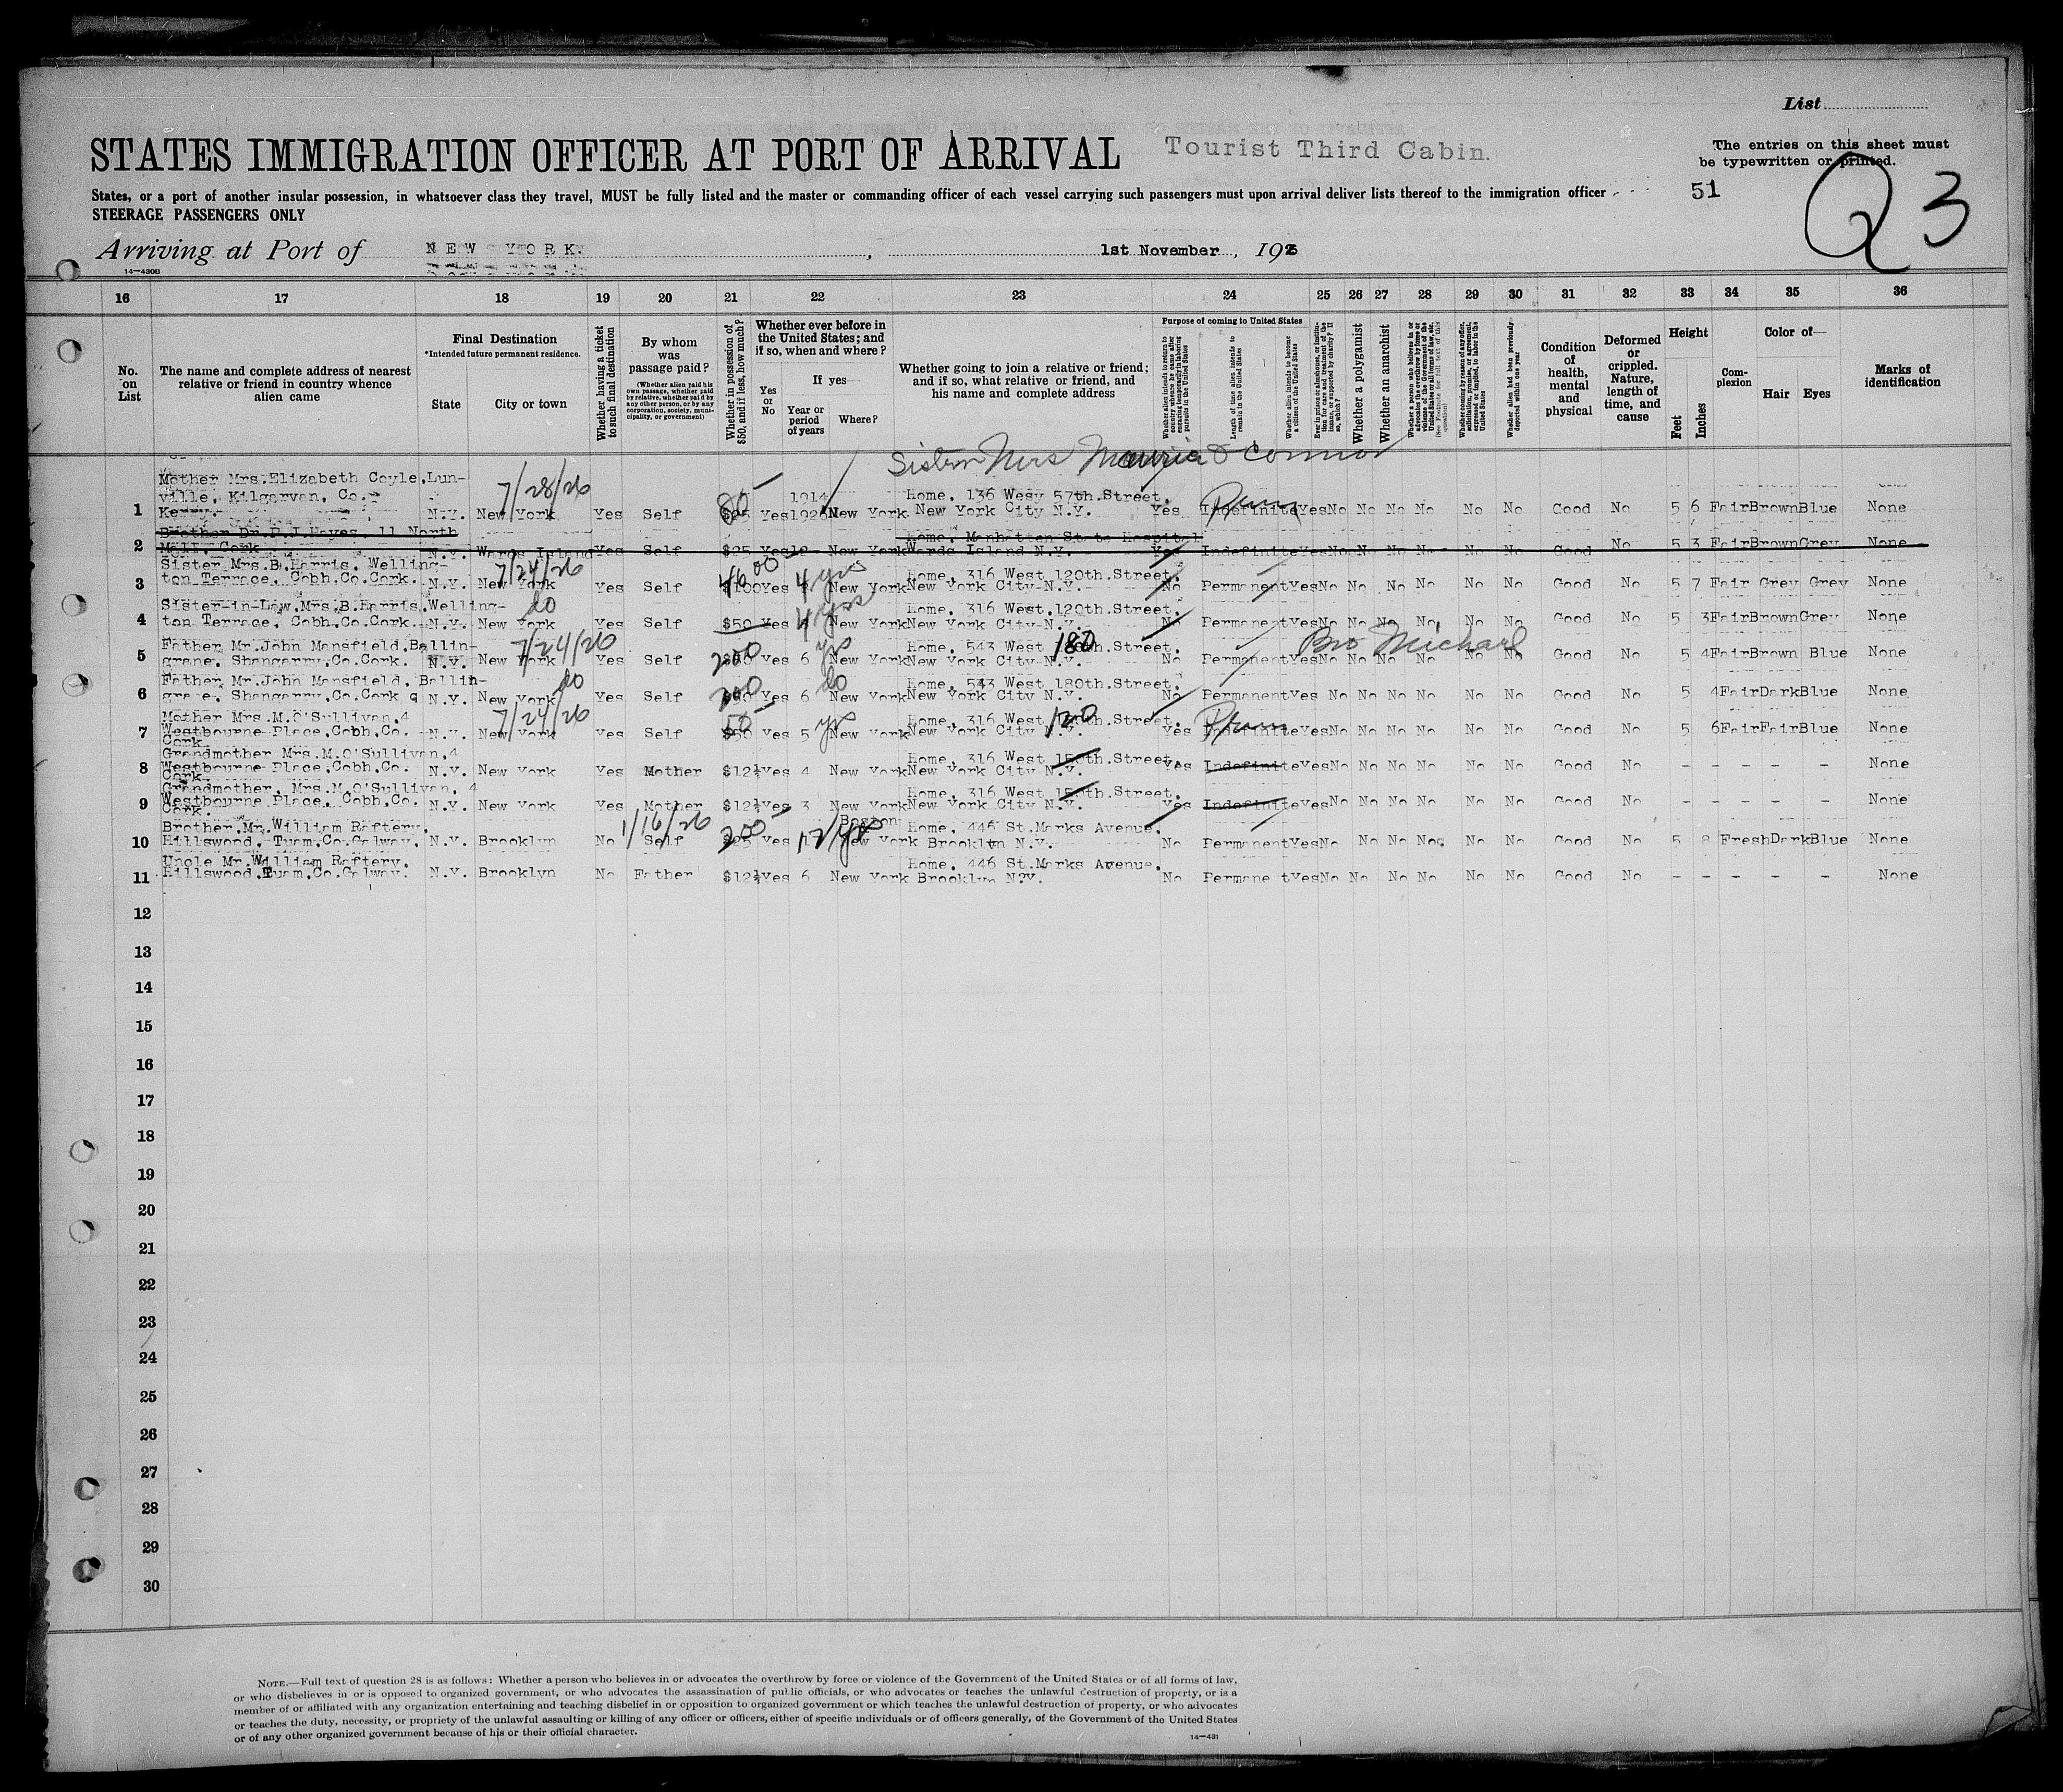 List
STATES IMMIGRATION OFFICER AT PORT OF ARRIVAL
Tourist Third Cabin.
The entries on this sheet must
be typewritten or printed.
States, or a port of another insular possession, in whatsoever class they travel, MUST be fully listed and the master or commanding officer of each vessel carrying such passengers must upon arrival deliver lists thereof to the immigration officer
51
Q3
STEERAGE PASSENGERS ONLY
Arriving at Port of NEW YORK. , 1st November , 192
14—430B
16 17 18 19 20 21 22 23 24 25 26 27 28 29 30 31 32 33 34 35 36
No. on List
The name and complete address of nearest relative or friend in country whence alien came
Final Destination
*Intended future permanent residence.
State City or town
Whether having a ticket to such final destination
By whom was passage paid?
(Whether alien paid his own passage, whether paid by relative, whether paid by any other person, or by any corporation, society, municipality, or government)
Whether in possession of $50, and if less, how much?
Whether ever before in the United States; and if so, when and where?
Yes or No
If yes—
Year or period of years
Where?
Whether going to join a relative or friend; and if so, what relative or friend, and his name and complete address
Purpose of coming to United States
Whether alien intends to return to country whence he came after engaging temporarily in laboring pursuits in the United States
Length of time alien intends to remain in the United States
Whether alien intends to become a citizen of the United States
Whether a polygamist
Whether an anarchist
Whether alien had been previously deported within one year
Condition of health, mental and physical
Deformed or crippled. Nature, length of time, and cause
Height
Feet Inches
Complexion
Color of—
Hair Eyes
Marks of identification
Sister Mrs O'Connor
Mother Mrs.Elizabeth Coyle,Lun-
ville, Kilgarvan, Co. 7/28/26 1914 Home, 136 Wesy 57th.Street.
1 Kerry. N.Y. New York Yes Self Yes New York New York City N.Y. Yes Indefinite Yes No No No No No No Good No 5 6 Fair Brown Blue None
Brother Dr.P.J.Hayes, 11 North Home, Manhattan State Hospital
2 Mall, Cork N.Y. Wards Island Yes Self $25 Yes New York Wards Island N.Y. Yes Indefinite Yes No No No No No No Good No 5 3 Fair Brown Grey None
Sister Mrs.B.Harris, Welling- 7/24/26 4 yrs Home, 316 West 120th.Street.
3 ton Terrace, Cobh,Co.Cork. N.Y. New York Yes Self $100 Yes New York New York City N.Y. No Permanent Yes No No No No No No Good No 5 7 Fair Grey Grey None
Sister-in-Law,Mrs.B.Harris,Welling- do 4 yrs Home, 316 West 120th.Street.
4 ton Terrace, Cobh,Co.Cork. N.Y. New York Yes Self $50 Yes New York New York City N.Y. No Permanent Yes No No No No No No Good No 5 3 Fair Brown Grey None
Father Mr.John Mansfield,Ballin- 7/24/26 200 yrs Home, 543 West 180th.Street. Bro Michael
5 grane, Shangarry,Co.Cork. N.Y. New York Yes Self Yes 6 New York New York City N.Y. No Permanent Yes No No No No No No Good No 5 4 Fair Brown Blue None
Father Mr.John Mansfield, Ballin- do 200 do Home, 543 West 180th.Street.
6 grane, Shangarry,Co.Cork N.Y. New York Yes Self Yes 6 New York New York City N.Y. No Permanent Yes No No No No No No Good No 5 4 Fair Dark Blue None
Mother Mrs.M.O'Sullivan,4 7/24/26 50 yrs Home, 316 West 120 th.Street. Perm
7 Westbourne Place,Cobh,Co. N.Y. New York Yes Self Yes 5 New York New York City N.Y. Yes Indefinite Yes No No No No No No Good No 5 6 Fair Fair Blue None
Cork.
Grandmother Mrs.M.O'Sullivan,4 Home, 316 West 150th.Street.
8 Westbourne Place,Cobh,Co. N.Y. New York Yes Mother $12½ Yes 4 New York New York City N.Y. Yes Indefinite Yes No No No No No No Good No - - - - - None
Cork.
Grandmother, Mrs.M.O'Sullivan, 4 Home, 316 West 150th.Street.
9 Westbourne Place, Cobh,Co. N.Y. New York Yes Mother $12½ Yes 3 New York New York City N.Y. Yes Indefinite Yes No No No No No No Good No - - - - - None
Cork.
Brother,Mr.William Raftery, 1/16/26 250 17 yrs Boston Home, 446 St.Marks Avenue,
10 Hillswood, Tuam,Co.Galway, N.Y. Brooklyn No Self Yes New York Brooklyn N.Y. No Permanent Yes No No No No No No Good No 5 8 Fresh Dark Blue None
Uncle Mr.William Raftery, Home, 446 St.Marks Avenue,
11 Hillswood,Tuam,Co.Galway. N.Y. Brooklyn No Father $12½ Yes 6 New York Brooklyn N.Y. No Permane t Yes No No No No No No Good No - - - - - None
12
13
14
15
16
17
18
19
20
21
22
23
24
25
26
27
28
29
30
NOTE.—Full text of question 28 is as follows: Whether a person who believes in or advocates the overthrow by force or violence of the Government of the United States or of all forms of law,
or who disbelieves in or is opposed to organized government, or who advocates the assassination of public officials, or who advocates or teaches the unlawful destruction of property, or is a
member of or affiliated with any organization entertaining and teaching disbelief in or opposition to organized government or which teaches the unlawful destruction of property, or who advocates
or teaches the duty, necessity, or propriety of the unlawful assaulting or killing of any officer or officers, either of specific individuals or of officers generally, of the Government of the United States
or of any other organized government because of his or their official character.
14—431